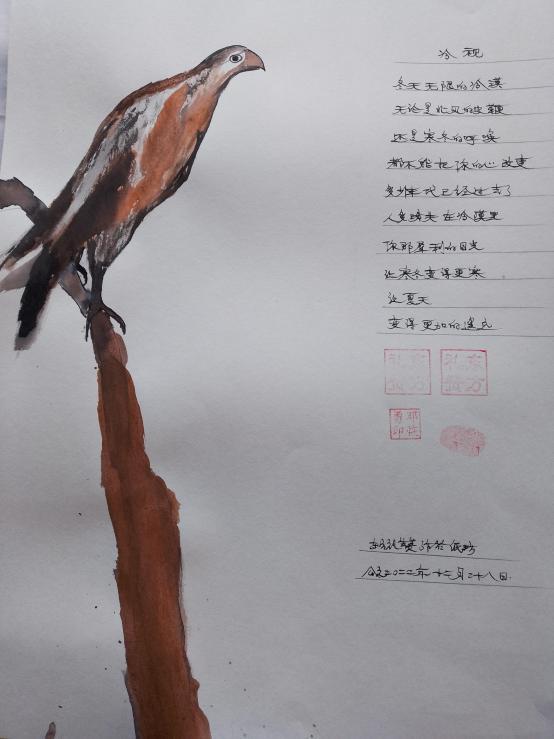 冷视
冬天无限的冷漠
无论是北风的皮鞭
还是寒冬的呼唤
都不能把你的心改变
多少年代已经过去了
人多消失在冷漠里
你那犀利的目光
让寒冬变得更寒
让夏天
变得更加的遥远
东方 作于
公元二〇二二年十二月二十八日